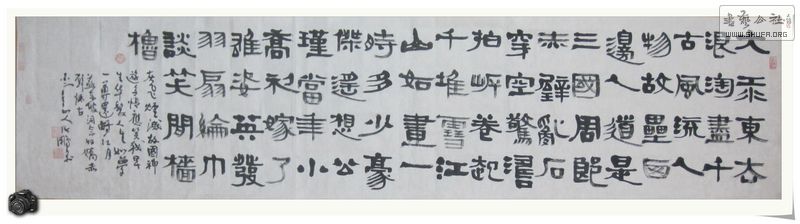 书艺公社
WWW.SHUFA.ORG
大江東去
浪淘盡千
古風流人
物故壘西
邊人道是
三國周郎
赤壁亂石
穿空驚濤
拍岸卷起
千堆雪江
山如畫一
時多少豪
傑遙想公
瑾當年小
喬初嫁了
雄姿英發
羽扇綸巾
談笑間檣
櫓
灰飛煙滅故國神
遊多情應笑我早
生華髮人生如夢
一尊還酹江月
蘇東坡詞念奴嬌赤
壁懷古